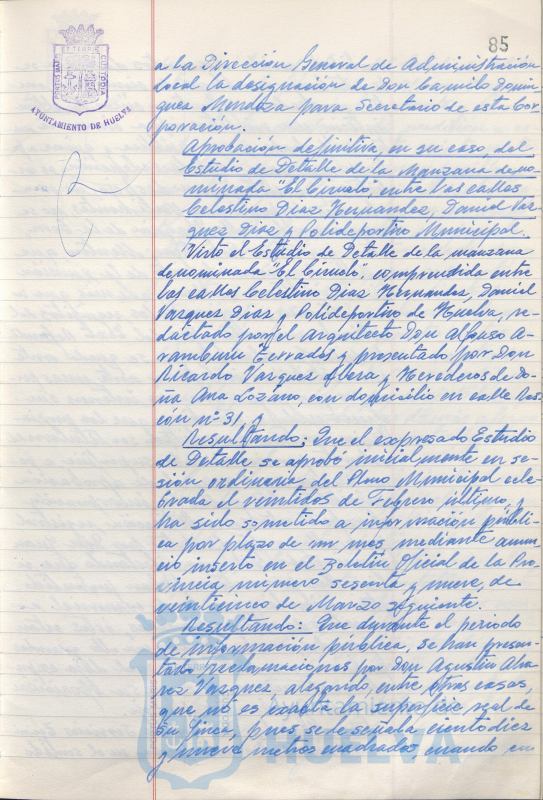 85
PORTUS MARIS ET TERRE CUSTODIA
AYUNTAMIENTO DE HUELVA
a la Dirección General de Administración
Local la designación de Don Camilo Domin
guez Mendoza para Secretario de esta Cor
poración.
Aprobación definitiva, en su caso, del
Estudio de Detalle de la Manzana deno-
minada "El Ciruelo", entre las calles
Celestino Diaz Hernandez, Daniel Vaz-
quez Diaz y Polideportivo Municipal.
Visto el Estudio de Detalle de la manzana
denominada "El Ciruelo", comprendida entre
las calles Celestino Diaz Hernandez, Daniel
Vazquez Diaz y Polideportivo de Huelva, re-
dactado por el arquitecto Don Alfonso A-
ramburu Terrados y presentado por Don
Ricardo Vazquez Albera y Herederos de Do-
ña Ana Lozano, con domicilio en calle Ras-
cón nº 31, y
Resultando: Que el expresado Estudio
de Detalle se aprobó inicialmente en se-
sión ordinaria del Pleno Municipal cele-
brada el veintidos de Febrero último, y
ha sido sometido a información públi-
ca por plazo de un mes mediante anun-
cio inserto en el Boletín Oficial de la Pro-
vincia número sesenta y nueve, de
veinticinco de Marzo siguiente.
Resultando: Que durante el periodo
de información pública, se han presen-
tado reclamaciones por Don Agustin Alva
rez Vazquez, alegando, entre otras cosas,
que no es exacta la superficie real de
su finca, pues se le señala ciento diez
y nueve metros cuadrados, cuando en
HUELVA